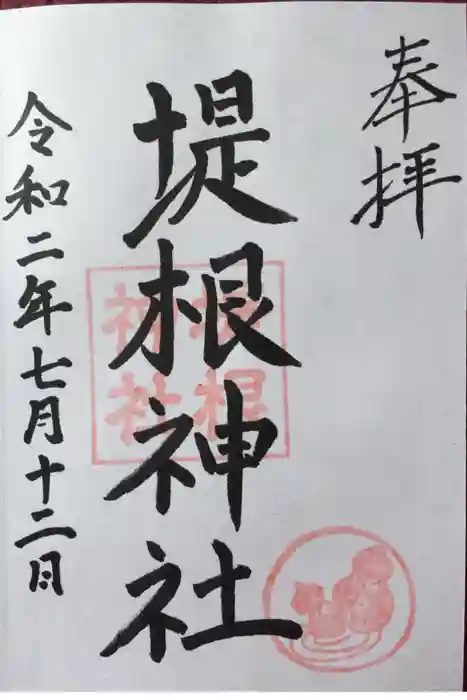 奉拝
堤根神社
堤根
神社
令和二年七月十二日